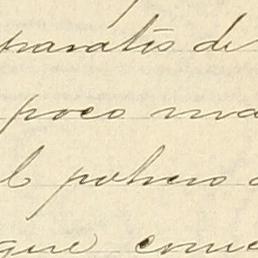 paratis de
poco ma
l potrero
que come